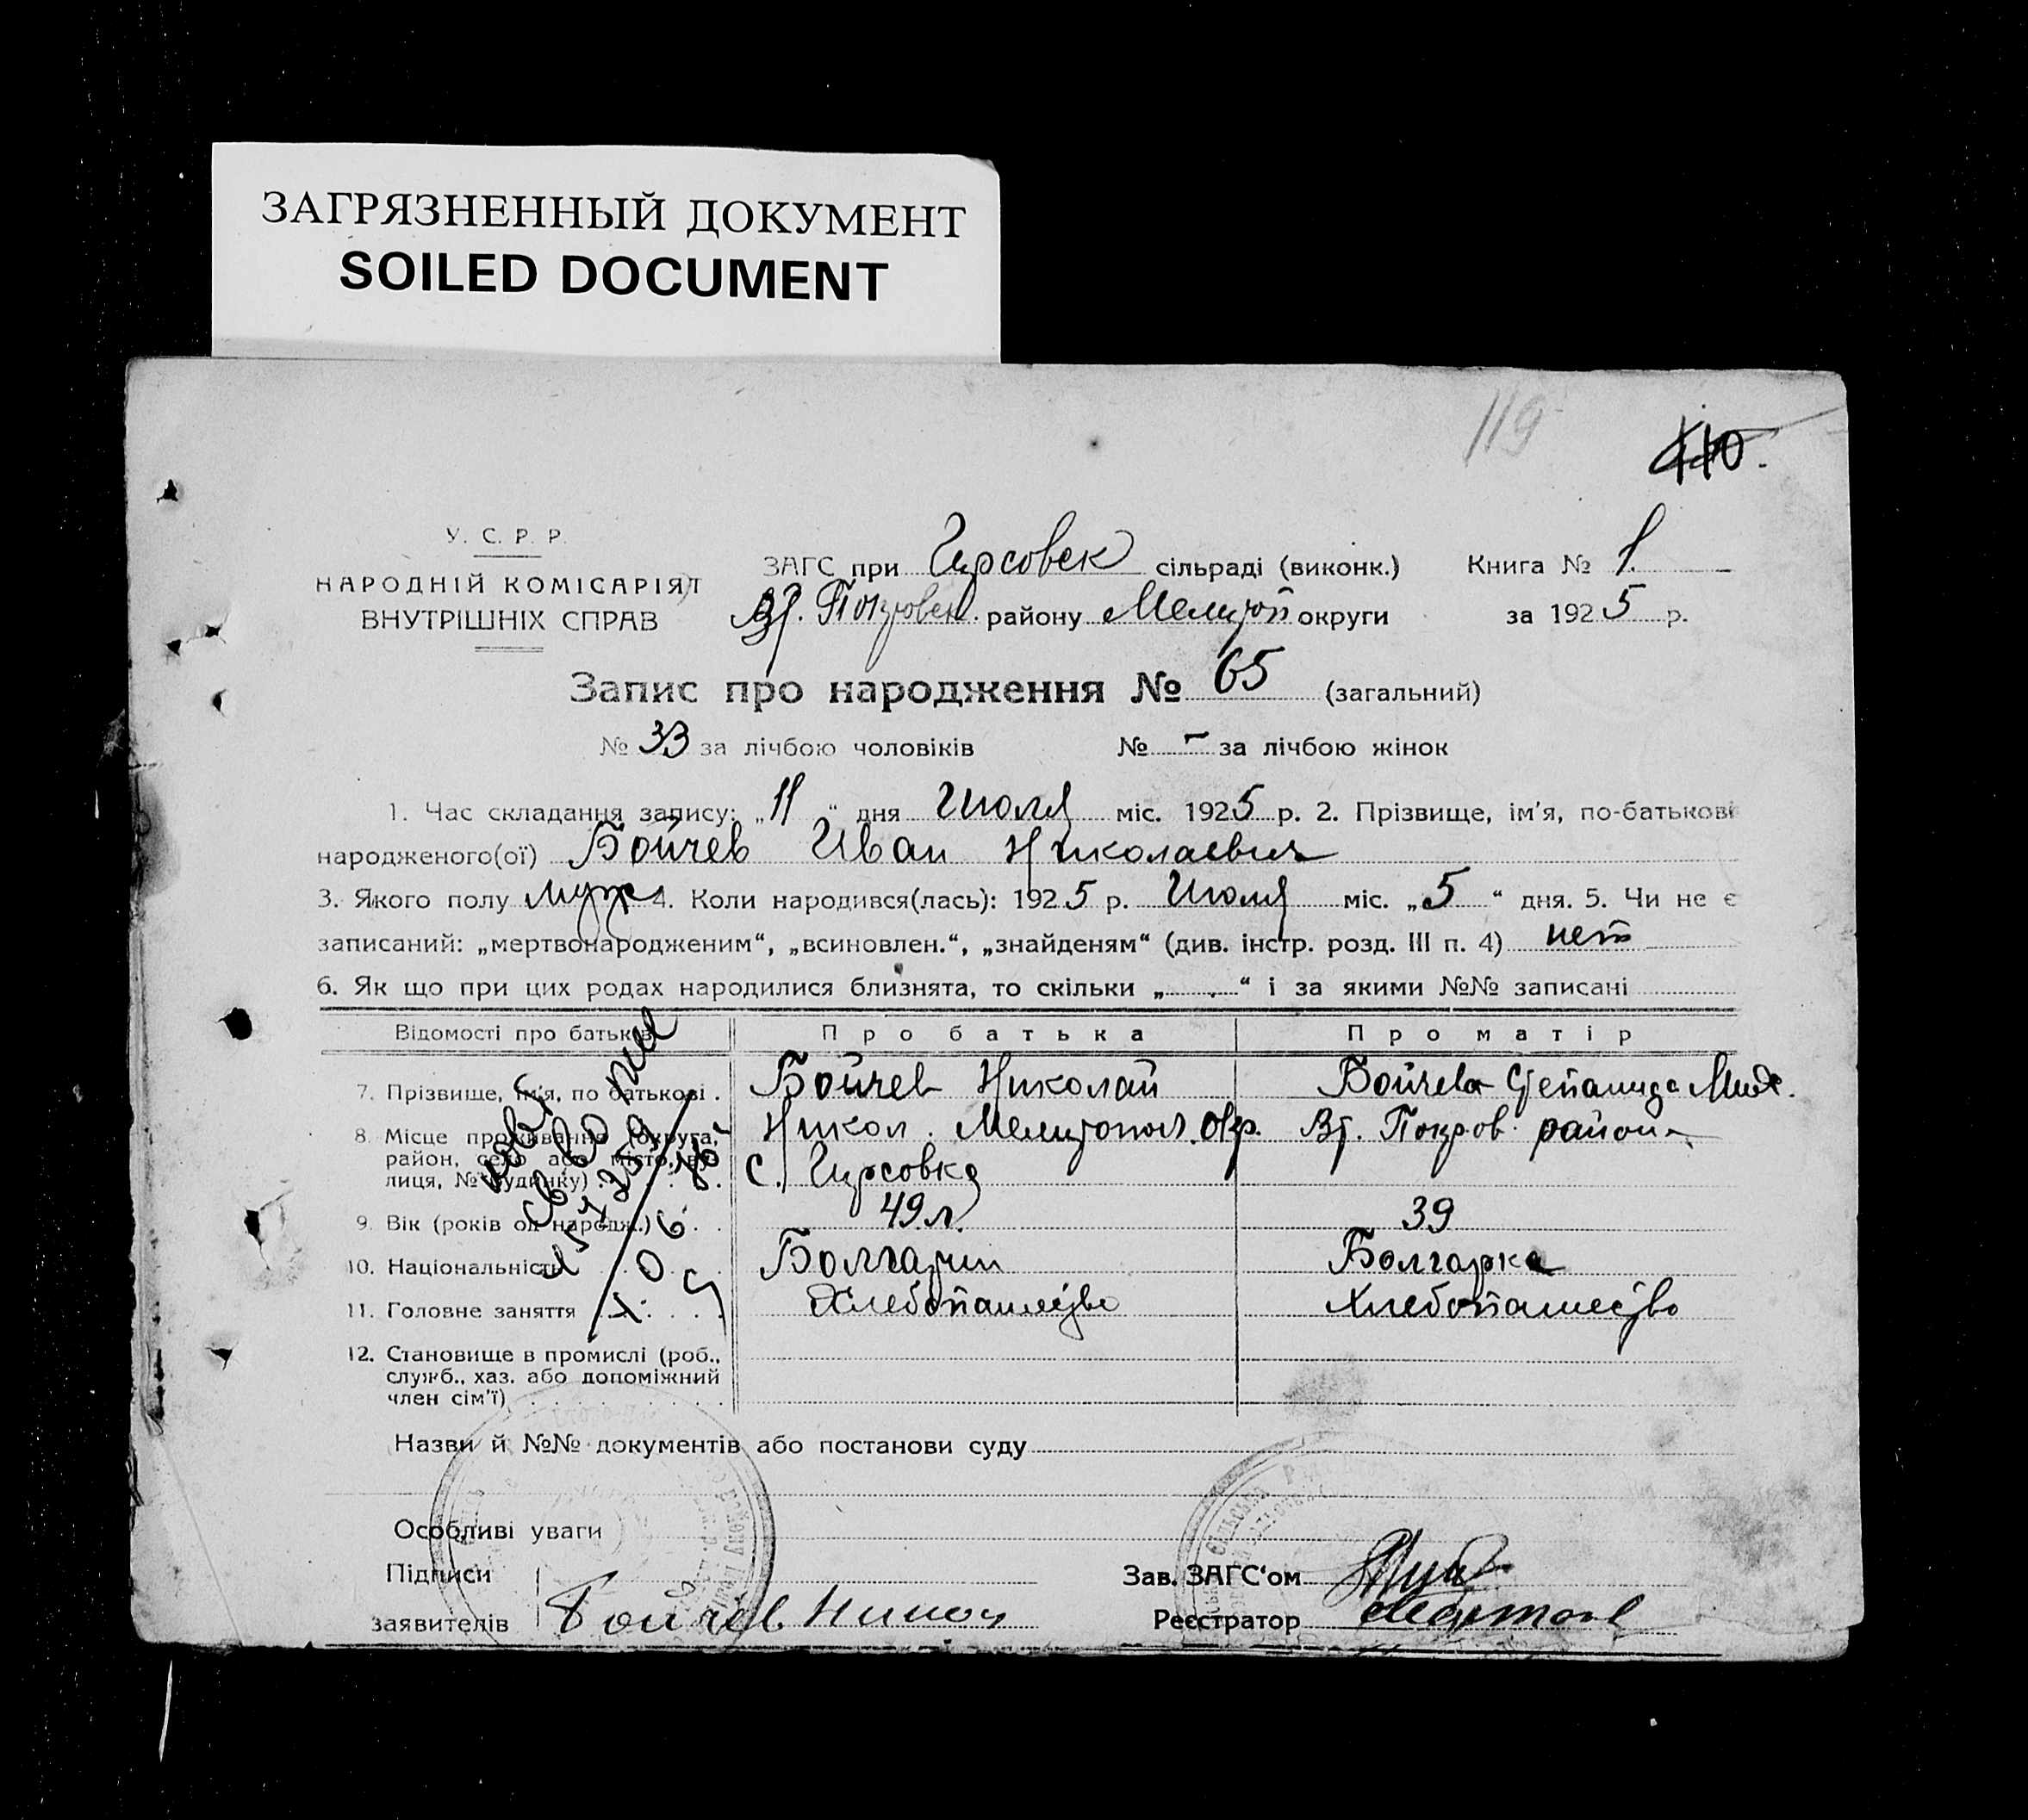 ЗАГРЯЗНЕННЫЙ ДОКУМЕНТ
SOILED DOCUMENT
119
110.
У. С. Р. Р.
НАРОДНІЙ КОМІСАРІЯТ
ВНУТРІШНІХ СПРАВ
ЗАГС при Гирсовск сільраді (виконк.) Книга № 1
Вт. Покровск. району Мелитоп округи за 1925 р.
Запис про народження № 65 (загальний)
№ 33 за лічбою чоловіків № - за лічбою жінок
1. Час складання запису: „11“ дня Июля міс. 1925 р. 2. Прізвище, ім'я, по-батькові
народженого(ої) Бойчев Иван Николаевич
3. Якого полу муж 4. Коли народився(лась): 1925 р. Июля міс. „5“ дня. 5. Чи не є
записаний: „мертвонародженим“, „всиновлен.“, „знайденям“ (див. інстр. розд. III п. 4) нет
6. Як що при цих родах народилися близнята, то скільки „ “ і за якими №№ записані
Відомості про батьків Про батька Про матір
7. Прізвище, ім'я, по батькові . Бойчев Николай Бойчева Степанида Мих.
8. Місце проживання (округа, Никол. Мелитопол. окр. Вт. Покров. район
район, село або місто, ву- с. Гирсовка
лиця, № будинку)
9. Вік (років од народж.) 49 л. 39
10. Національність Болгарин Болгарка
11. Головне заняття Хлебопашество Хлебопашество
12. Становище в промислі (роб.,
служб., хаз. або допоміжний
член сім'ї)
Назви й №№ документів або постанови суду
Особливі уваги
Підписи Зав. ЗАГС'ом
заявителів Бойчев Никол Реєстратор